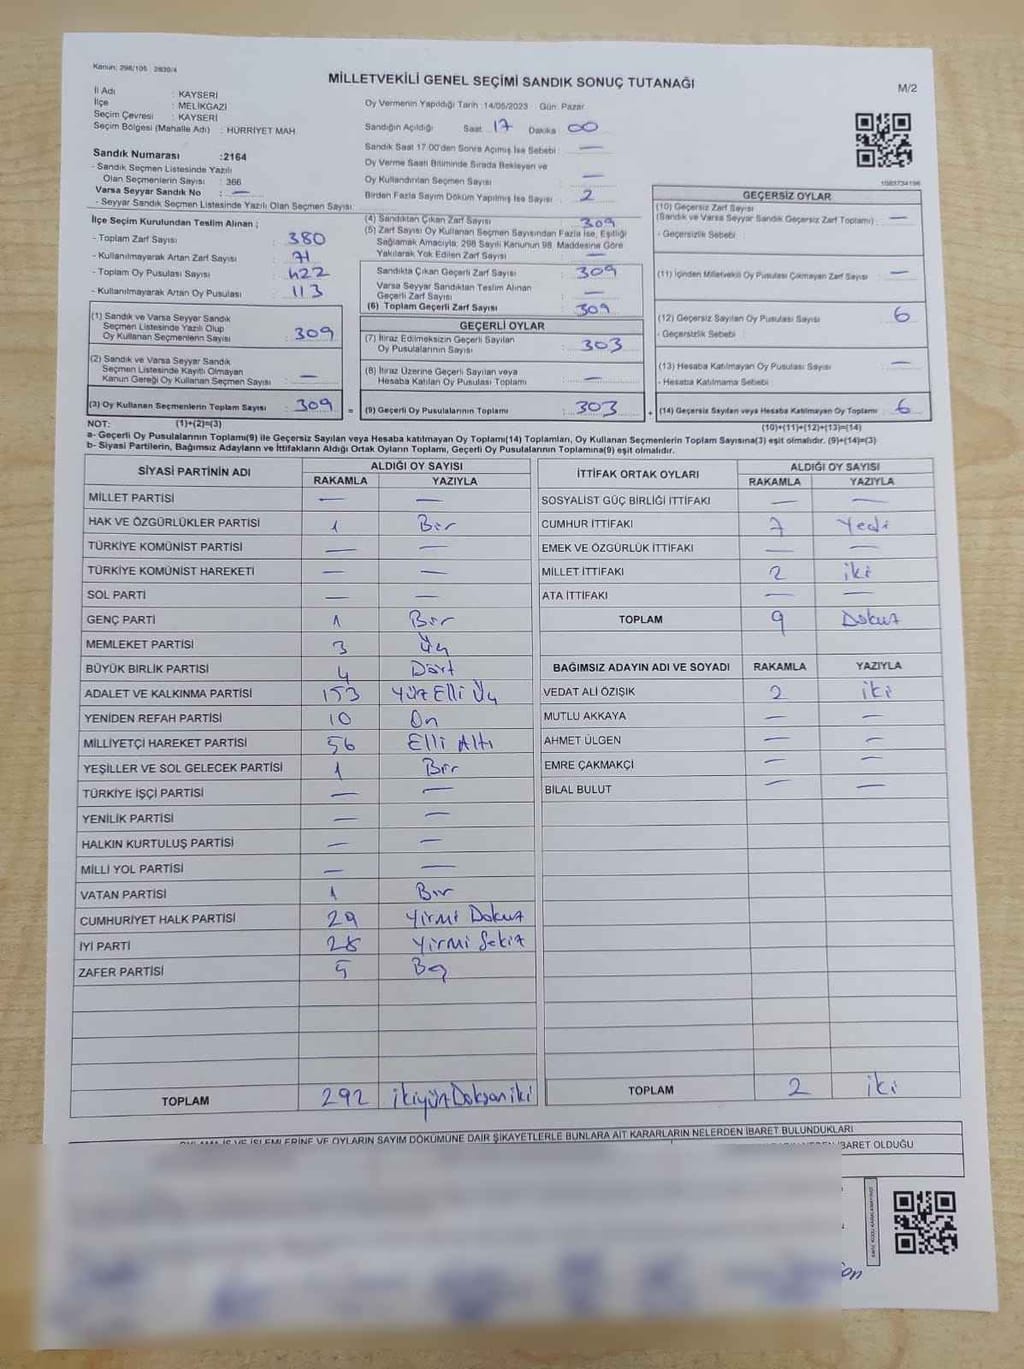 Kanun: 298/105 : 2839/4
MİLLETVEKİLİ GENEL SEÇİMİ SANDIK SONUÇ TUTANAĞI
M/2
İl Adı : KAYSERİ
İlçe : MELİKGAZİ
Seçim Çevresi : KAYSERİ
Seçim Bölgesi (Mahalle Adı) : HÜRRİYET MAH
Sandık Numarası :2164
- Sandık Seçmen Listesinde Yazılı
Olan Seçmenlerin Sayısı : 366
Varsa Seyyar Sandık No : —
- Seyyar Sandık Seçmen Listesinde Yazılı Olan Seçmen Sayısı:
Oy Vermenin Yapıldığı Tarih :14/05/2023 Gün: Pazar
Sandığın Açıldığı Saat: 17 Dakika: 00
Sandık Saat 17.00'den Sonra Açılmış İse Sebebi : —
Oy Verme Saati Bitiminde Sırada Bekleyen ve
Oy Kullandırılan Seçmen Sayısı : —
Birden Fazla Sayım Döküm Yapılmış İse Sayısı : 2
İlçe Seçim Kurulundan Teslim Alınan ;
- Toplam Zarf Sayısı : 380
- Kullanılmayarak Artan Zarf Sayısı : 71
- Toplam Oy Pusulası Sayısı : 422
- Kullanılmayarak Artan Oy Pusulası : 113
(1) Sandık ve Varsa Seyyar Sandık
Seçmen Listesinde Yazılı Olup
Oy Kullanan Seçmenlerin Sayısı : 309
(2) Sandık ve Varsa Seyyar Sandık
Seçmen Listesinde Kayıtlı Olmayan
Kanun Gereği Oy Kullanan Seçmen Sayısı : —
(3) Oy Kullanan Seçmenlerin Toplam Sayısı : 309
(4) Sandıktan Çıkan Zarf Sayısı : 309
(5) Zarf Sayısı Oy Kullanan Seçmen Sayısından Fazla İse, Eşitliği
Sağlamak Amacıyla; 298 Sayılı Kanunun 98. Maddesine Göre
Yakılarak Yok Edilen Zarf Sayısı : —
Sandıkta Çıkan Geçerli Zarf Sayısı : 309
Varsa Seyyar Sandıktan Teslim Alınan
Geçerli Zarf Sayısı : —
(6) Toplam Geçerli Zarf Sayısı : 309
GEÇERLİ OYLAR
(7) İtiraz Edilmeksizin Geçerli Sayılan
Oy Pusulalarının Sayısı : 303
(8) İtiraz Üzerine Geçerli Sayılan veya
Hesaba Katılan Oy Pusulası Toplamı : —
= (9) Geçerli Oy Pusulalarının Toplamı : 303
GEÇERSİZ OYLAR
(10) Geçersiz Zarf Sayısı
(Sandık ve Varsa Seyyar Sandık Geçersiz Zarf Toplamı) : —
- Geçersizlik Sebebi :
(11) İçinden Milletvekili Oy Pusulası Çıkmayan Zarf Sayısı : —
(12) Geçersiz Sayılan Oy Pusulası Sayısı : 6
- Geçersizlik Sebebi :
(13) Hesaba Katılmayan Oy Pusulası Sayısı : —
- Hesaba Katılmama Sebebi :
+ (14) Geçersiz Sayılan veya Hesaba Katılmayan Oy Toplamı : 6
NOT: (1)+(2)=(3)
(10)+(11)+(12)+(13)=(14)
a- Geçerli Oy Pusulalarının Toplamı(9) ile Geçersiz Sayılan veya Hesaba katılmayan Oy Toplamı(14) Toplamları, Oy Kullanan Seçmenlerin Toplam Sayısına(3) eşit olmalıdır. (9)+(14)=(3)
b- Siyasi Partilerin, Bağımsız Adayların ve İttifakların Aldığı Ortak Oyların Toplamı, Geçerli Oy Pusulalarının Toplamına(9) eşit olmalıdır.
SİYASİ PARTİNİN ADI ALDIĞI OY SAYISI
RAKAMLA YAZIYLA
MİLLET PARTİSİ — —
HAK VE ÖZGÜRLÜKLER PARTİSİ 1 Bir
TÜRKİYE KOMÜNİST PARTİSİ — —
TÜRKİYE KOMÜNİST HAREKETİ — —
SOL PARTİ — —
GENÇ PARTİ 1 Bir
MEMLEKET PARTİSİ 3 Üç
BÜYÜK BİRLİK PARTİSİ 4 Dört
ADALET VE KALKINMA PARTİSİ 153 Yüz Elli Üç
YENİDEN REFAH PARTİSİ 10 On
MİLLİYETÇİ HAREKET PARTİSİ 56 Elli Altı
YEŞİLLER VE SOL GELECEK PARTİSİ 1 Bir
TÜRKİYE İŞÇİ PARTİSİ — —
YENİLİK PARTİSİ — —
HALKIN KURTULUŞ PARTİSİ — —
MİLLİ YOL PARTİSİ — —
VATAN PARTİSİ 1 Bir
CUMHURİYET HALK PARTİSİ 29 Yirmi Dokuz
İYİ PARTİ 28 Yirmi Sekiz
ZAFER PARTİSİ 5 Beş
TOPLAM 292 ikiyüzDoksaniki
İTTİFAK ORTAK OYLARI ALDIĞI OY SAYISI
RAKAMLA YAZIYLA
SOSYALİST GÜÇ BİRLİĞİ İTTİFAKI — —
CUMHUR İTTİFAKI 7 Yedi
EMEK VE ÖZGÜRLÜK İTTİFAKI — —
MİLLET İTTİFAKI 2 iki
ATA İTTİFAKI — —
TOPLAM 9 Dokuz
BAĞIMSIZ ADAYIN ADI VE SOYADI RAKAMLA YAZIYLA
VEDAT ALİ ÖZIŞIK 2 iki
MUTLU AKKAYA — —
AHMET ÜLGEN — —
EMRE ÇAKMAKÇİ — —
BİLAL BULUT — —
TOPLAM 2 iki
OYLAMA İŞ VE İŞLEMLERİNE VE OYLARIN SAYIM DÖKÜMÜNE DAİR ŞİKAYETLERLE BUNLARA AİT KARARLARIN NELERDEN İBARET BULUNDUKLARI
İBARET OLDUĞU